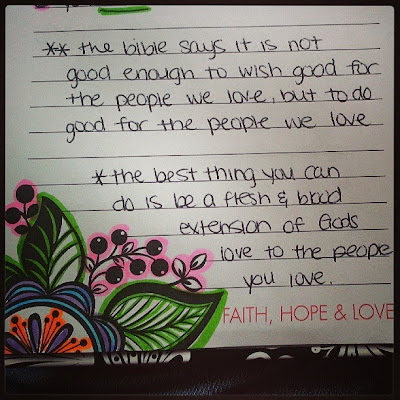 ** the bible says it is not
good enough to wish good for
the people we love, but to do
good for the people we love
* the best thing you can
do is be a flesh & blood
extension of Gods
love to the people
you love.
FAITH, HOPE & LOVE